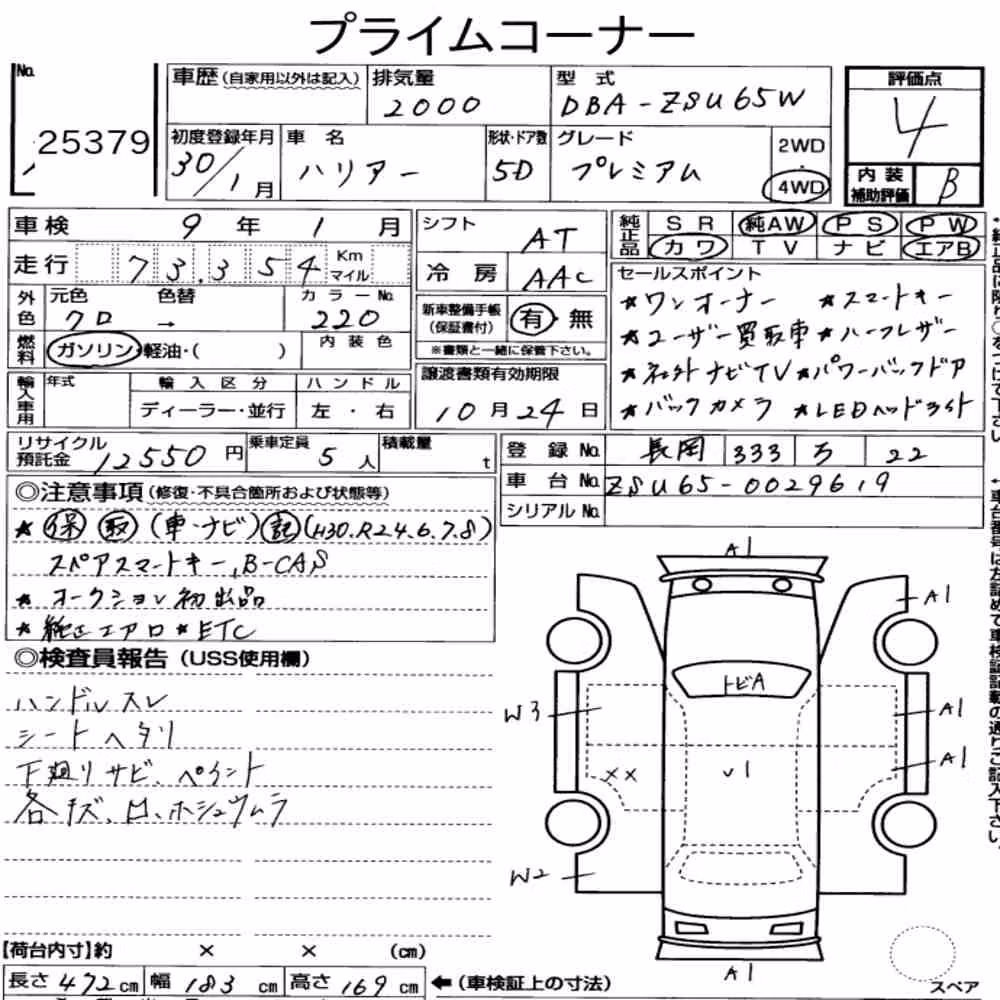 プライムコーナー
No. 25379
車歴 (自家用以外は記入)
排気量 2000
型式 DBA-ZSU65W
評価点 4
内装補助評価 B
初度登録年月 30/1月
車名 ハリアー
形状・ドア数 5D
グレード プレミアム
2WD ・ 4WD
車検 9年 1月
走行 73,354 Km マイル
シフト AT
冷房 AAC
純正品 SR 純AW PS PW
カワ TV ナビ エアB
外色 元色 クロ 色替 → カラーNo. 220
燃料 ガソリン・軽油・( ) 内装色
新車整備手帳(保証書付) 有・無
※書類と一緒に保管下さい。
セールスポイント
★ワンオーナー ★スマートキー
★ユーザー買取車 ★ハーフレザー
★社外ナビTV ★パワーバックドア
★バックカメラ ★LEDヘッドライト
輸入車用 年式 輸入区分 ハンドル
ディーラー・並行 左・右
譲渡書類有効期限
10月24日
リサイクル預託金 12550円
乗車定員 5人
積載量 t
登録No. 長岡 333 ち 22
車台No. ZSU65-0029619
シリアルNo.
◎注意事項 (修復・不具合箇所および状態等)
★ 保 取 (車・ナビ) 記 (H30.R2.4.6.7.8)
スペアスマートキー、B-CAS
★ オークション初出品
★ 純正エアロ ★ETC
◎検査員報告 (USS使用欄)
ハンドルスレ
シートヘタリ
下廻りサビ、ペイント
各キズ、凹、ホシュウムラ
A1
A1
トビA
W3
A1
A1
XX
U1
W2
A1
スペア
【荷台内寸】約 × × (cm)
長さ 472 cm 幅 183 cm 高さ 169 cm ←(車検証上の寸法)